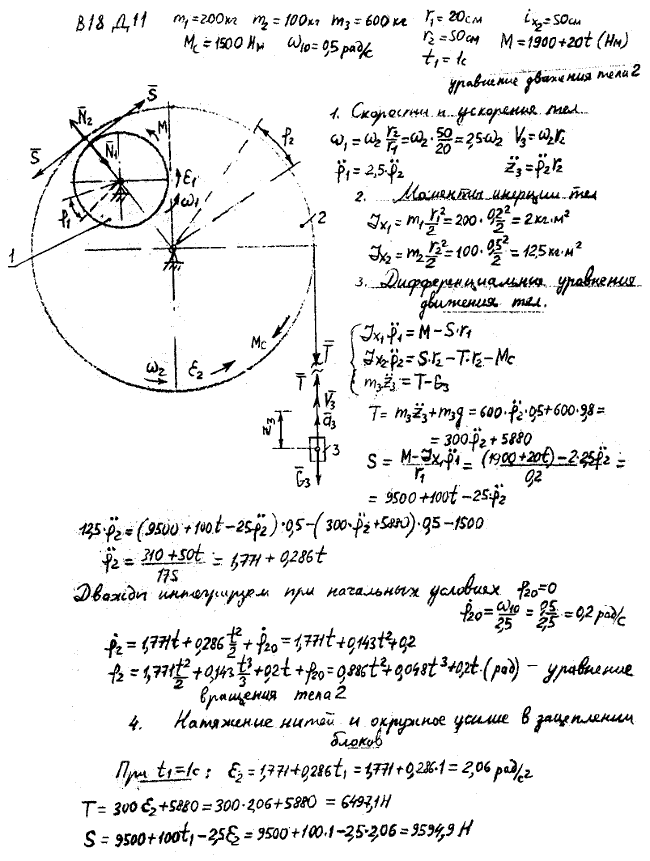 В18 Д11 m₁=200кг m₂=100кг m₃=600кг r₁=20см i_x₂=50см
M_C=1500 Нм ω₁₀=0,5 рад/с r₂=50см M=1900+20t (Нм)
t₁=1с
уравнение движения тела 2
1. Скорости и ускорения тел
ω₁=ω₂ r₂/r₁=ω₂·50/20=2,5ω₂ V₃=ω₂r₂
φ̈₁=2,5·φ̈₂ z̈₃=φ̈₂r₂
2. Моменты инерции тел
Jx₁=m₁ r₁²/2=200·0,2²/2=2кг·м²
Jx₂=m₂ r₂²/2=100·0,5²/2=12,5кг·м²
3. Дифференциальные уравнения
движения тел.
Jx₁φ̈₁=M-S·r₁
Jx₂φ̈₂=S·r₂-T·r₂-Mc
m₃z̈₃=T-G₃
T=m₃z̈₃+m₃g=600·φ̈₂·0,5+600·9,8=
=300φ̈₂+5880
S=(M-Jx₁φ̈₁)/r₁=((1900+20t)-2·2,5φ̈₂)/0,2=
=9500+100t-25φ̈₂
S̄
N̄₂
S̄
N̄₁
M
φ₂
ε₁
ω₁
φ₁
1
2
Mc
ω₂
ε₂
T̄
T̄
V̄₃
ā₃
z₃
3
Ḡ₃
12,5·φ̈₂=(9500+100t-25φ̈₂)·0,5-(300·φ̈₂+5880)·0,5-1500
φ̈₂=(310+50t)/175=1,771+0,286t
Дважды интегрируем при начальных условиях φ₂₀=0
φ̇₂₀=ω₁₀/2,5=0,5/2,5=0,2 рад/с
φ̇₂=1,771t+0,286t²/2+φ̇₂₀=1,771t+0,143t²+0,2
φ₂=1,771t²/2+0,143t³/3+0,2t+φ₂₀=0,886t²+0,048t³+0,2t·(рад) – уравнение
вращения тела 2
4. Натяжение нитей и окружное усилие в зацеплении
блоков
При t₁=1с: ε₂=1,771+0,286t₁=1,771+0,286·1=2,06 рад/с²
T=300ε₂+5880=300·2,06+5880=6497,1Н
S=9500+100t₁-2,5ε₂=9500+100·1-2,5·2,06=9594,9 Н